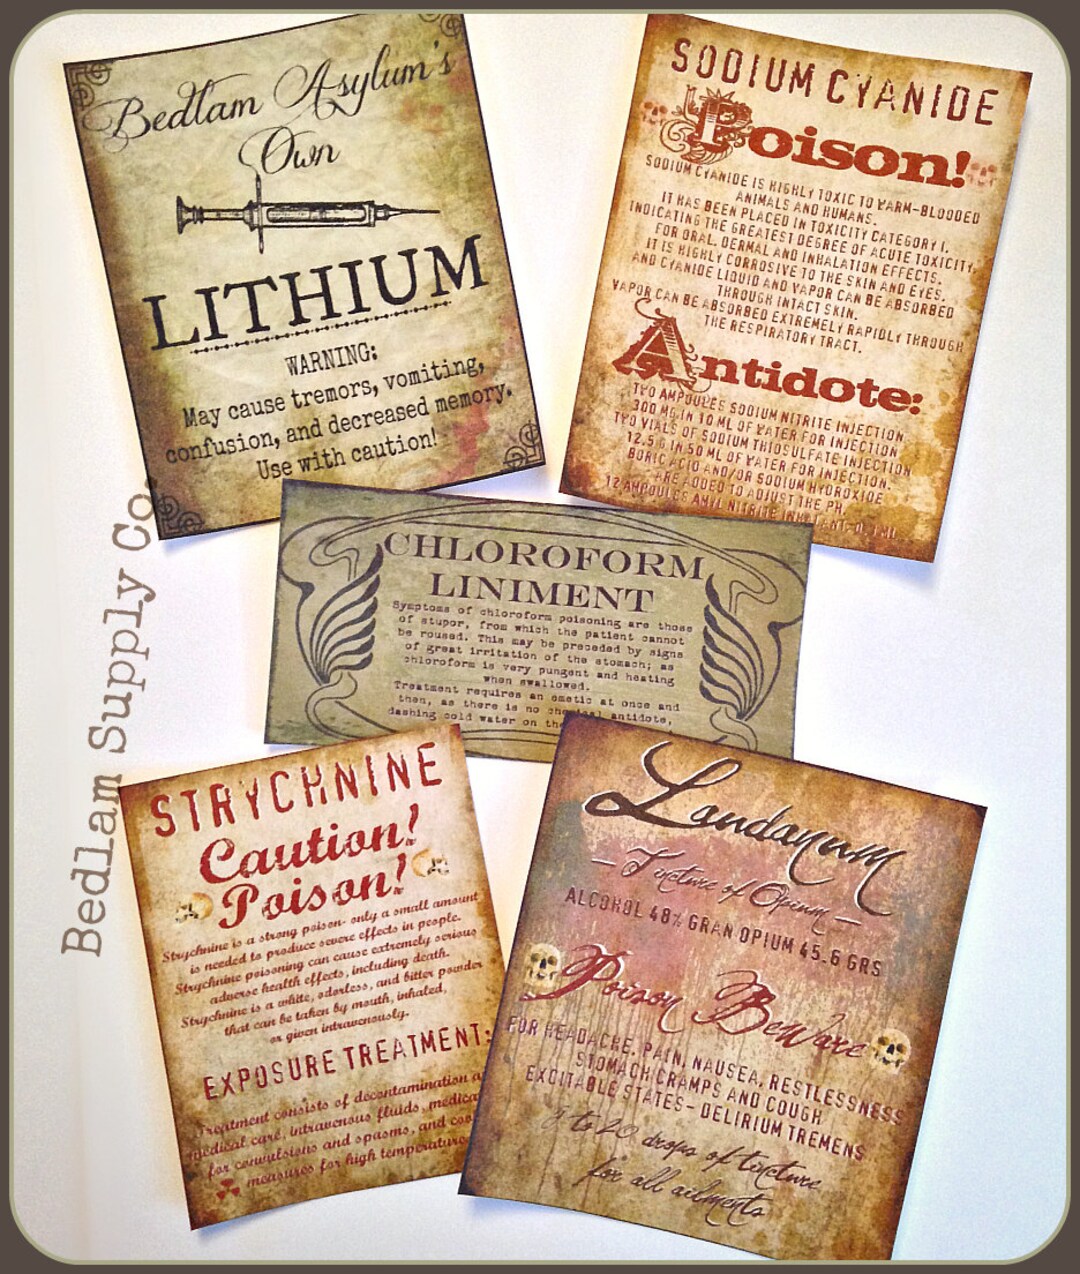 Bedlam Asylum's
Own
LITHIUM
WARNING:
May cause tremors, vomiting,
confusion, and decreased memory.
Use with caution!
SODIUM CYANIDE
Poison!
SODIUM CYANIDE IS HIGHLY TOXIC TO WARM-BLOODED
ANIMALS AND HUMANS.
IT HAS BEEN PLACED IN TOXICITY CATEGORY I,
INDICATING THE GREATEST DEGREE OF ACUTE TOXICITY,
FOR ORAL, DERMAL AND INHALATION EFFECTS.
IT IS HIGHLY CORROSIVE TO THE SKIN AND EYES,
AND CYANIDE LIQUID AND VAPOR CAN BE ABSORBED
THROUGH INTACT SKIN.
VAPOR CAN BE ABSORBED EXTREMELY RAPIDLY THROUGH
THE RESPIRATORY TRACT.
Antidote:
TWO AMPOULES SODIUM NITRITE INJECTION
300 MG IN 10 ML OF WATER FOR INJECTION
TWO VIALS OF SODIUM THIOSULFATE INJECTION
12.5 G IN 50 ML OF WATER FOR INJECTION.
BORIC ACID AND/OR SODIUM HYDROXIDE
ARE ADDED TO ADJUST THE PH.
12 AMPOULES AMYL NITRITE
CHLOROFORM
LINIMENT
Symptoms of chloroform poisoning are those
of stupor, from which the patient cannot
be roused. This may be preceded by signs
of great irritation of the stomach; as
chloroform is very pungent and heating
when swallowed.
Treatment requires an emetic at once and
then, as there is no chemical antidote,
dashing cold water on the
STRYCHNINE
Caution!
Poison!
Strychnine is a strong poison- only a small amount
is needed to produce severe effects in people.
Strychnine poisoning can cause extremely serious
adverse health effects, including death.
Strychnine is a white, odorless, and bitter powder
that can be taken by mouth, inhaled,
or given intravenously.
EXPOSURE TREATMENT:
Treatment consists of decontamination
medical care, intravenous fluids, medica
for convulsions and spasms, and coo
measures for high temperature
Laudanum
– Tincture of Opium –
ALCOHOL 48% GRAN OPIUM 45.6 GRS
Poison Beware
FOR HEADACHE, PAIN, NAUSEA, RESTLESSNESS
STOMACH CRAMPS AND COUGH
EXCITABLE STATES- DELIRIUM TREMENS
to 20 drops of tincture
for all ailments
Bedlam Supply Co